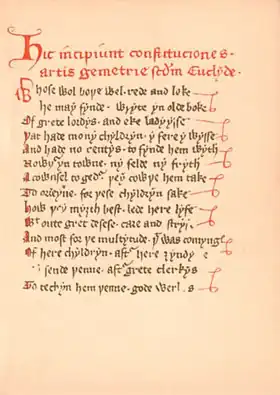 Hic incipiunt constituciones
artis gemetrie scdm Euclyde.
Whose wol boþe wel rede and loke
he may fynde wryte yn olde boke
Of grete lordys and eke ladyysse
þat hade mony chyldryn y fere y wysse
And hade no rentys to fynde hem wyth
Nowþer yn towne ny felde ny fryth
A cownsel to geder þey cowþe hem take
To ordeyne for þese chyldryn sake
How þey myȝth best lede here lyfe
Wt oute gret desese care and stryf
And most for þe multytude þt was comynge
Of here chyldryn aftr here ȝyndynge
sende þenne aftr grete clerkys
To techyn hem þenne gode werkys